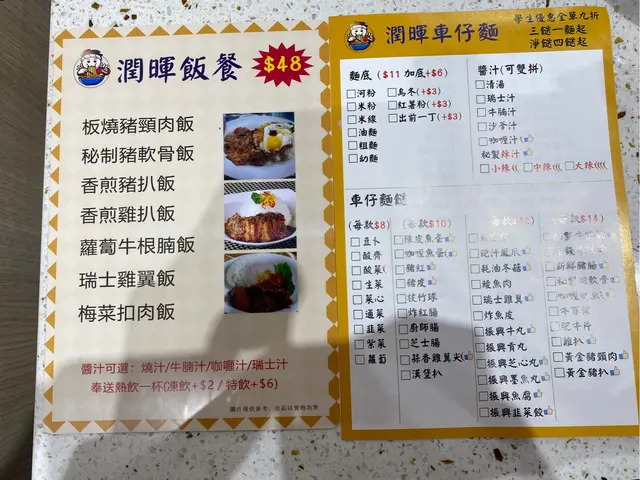 潤暉飯餐
$48
板燒豬頸肉飯
秘制豬軟骨飯
香煎豬扒飯
香煎雞扒飯
蘿蔔牛根腩飯
瑞士雞翼飯
梅菜扣肉飯
醬汁可選：燒汁/牛腩汁/咖喱汁/瑞士汁
奉送熱飲一杯(凍飲+$2 / 特飲+$6)
圖片僅供參考，出品以實物為準
潤暉車仔麵
學生優惠全單九折
三餸一麵起
淨餸四餸起
麵底 ($11 加底+$6)
河粉
米粉
米線
油麵
粗麵
幼麵
烏冬(+$3)
紅薯粉(+$3)
出前一丁(+$3)
醬汁(可雙拼)
清湯
瑞士汁
牛腩汁
沙爹汁
咖喱汁(
秘製辣汁
小辣
中辣
大辣
車仔麵餸
(每款$8)
豆卜
酸齋
酸菜(
生菜
菜心
通菜
韭菜
紫菜
蘿蔔
(每款$10)
陳皮魚蛋
咖喱魚蛋
豬紅
豬皮
枝竹球
炸紅腸
廚師腸
芝士腸
蒜香雞翼尖(
漢堡扒
豉汁鳳爪
蠔油冬菇
鯪魚肉
瑞士雞翼
炸魚皮
振興牛丸
振興貢丸
振興芝心丸
振興墨魚丸
振興魚腐
振興韭菜餃
(每款$14)
新鮮豬腸
秘製豬軟骨
牛百葉
肥牛片
雞扒
黃金豬頸肉
黃金豬扒